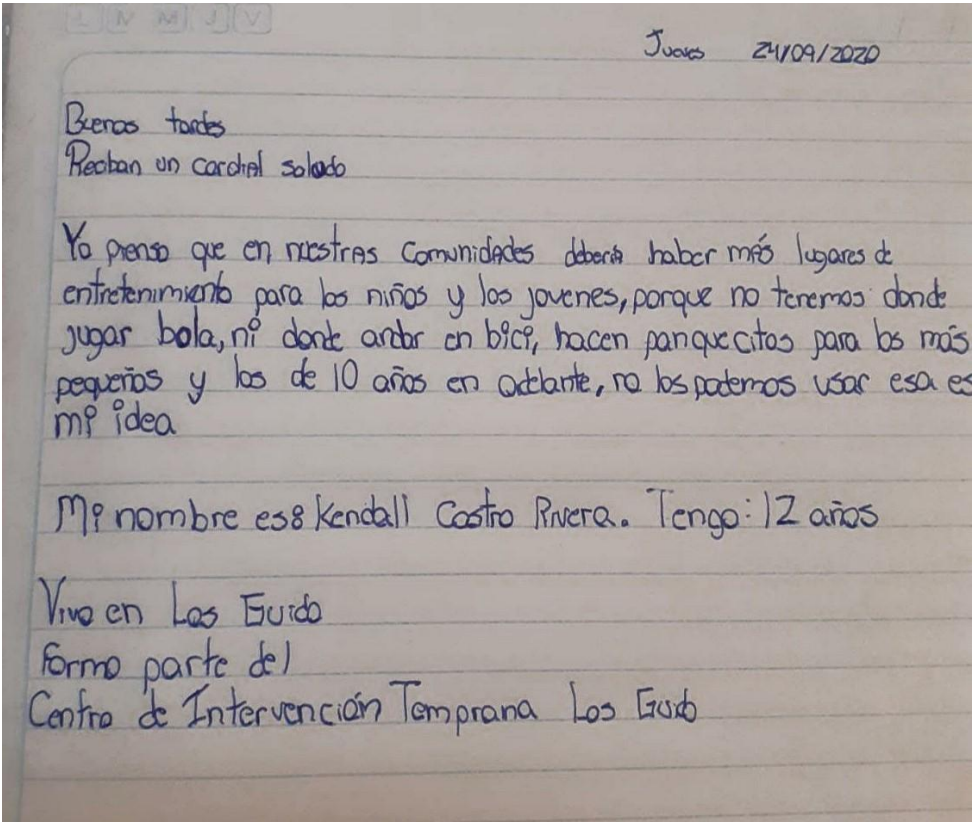 L N M J V
Jueves 24/09/2020
Buenas tardes
Reciban un cordial saludo
Yo pienso que en nuestras comunidades debería haber más lugares de
entretenimiento para los niños y los jovenes, porque no tenemos donde
jugar bola, ni donde andar en bici, hacen panquecitos para los más
pequeños y los de 10 años en adelante, no los podemos usar esa es
mi idea
Mi nombre es: Kendall Castro Rivera. Tengo: 12 años
Vivo en Los Guido
Formo parte del
Centro de Intervención Temprana Los Guido